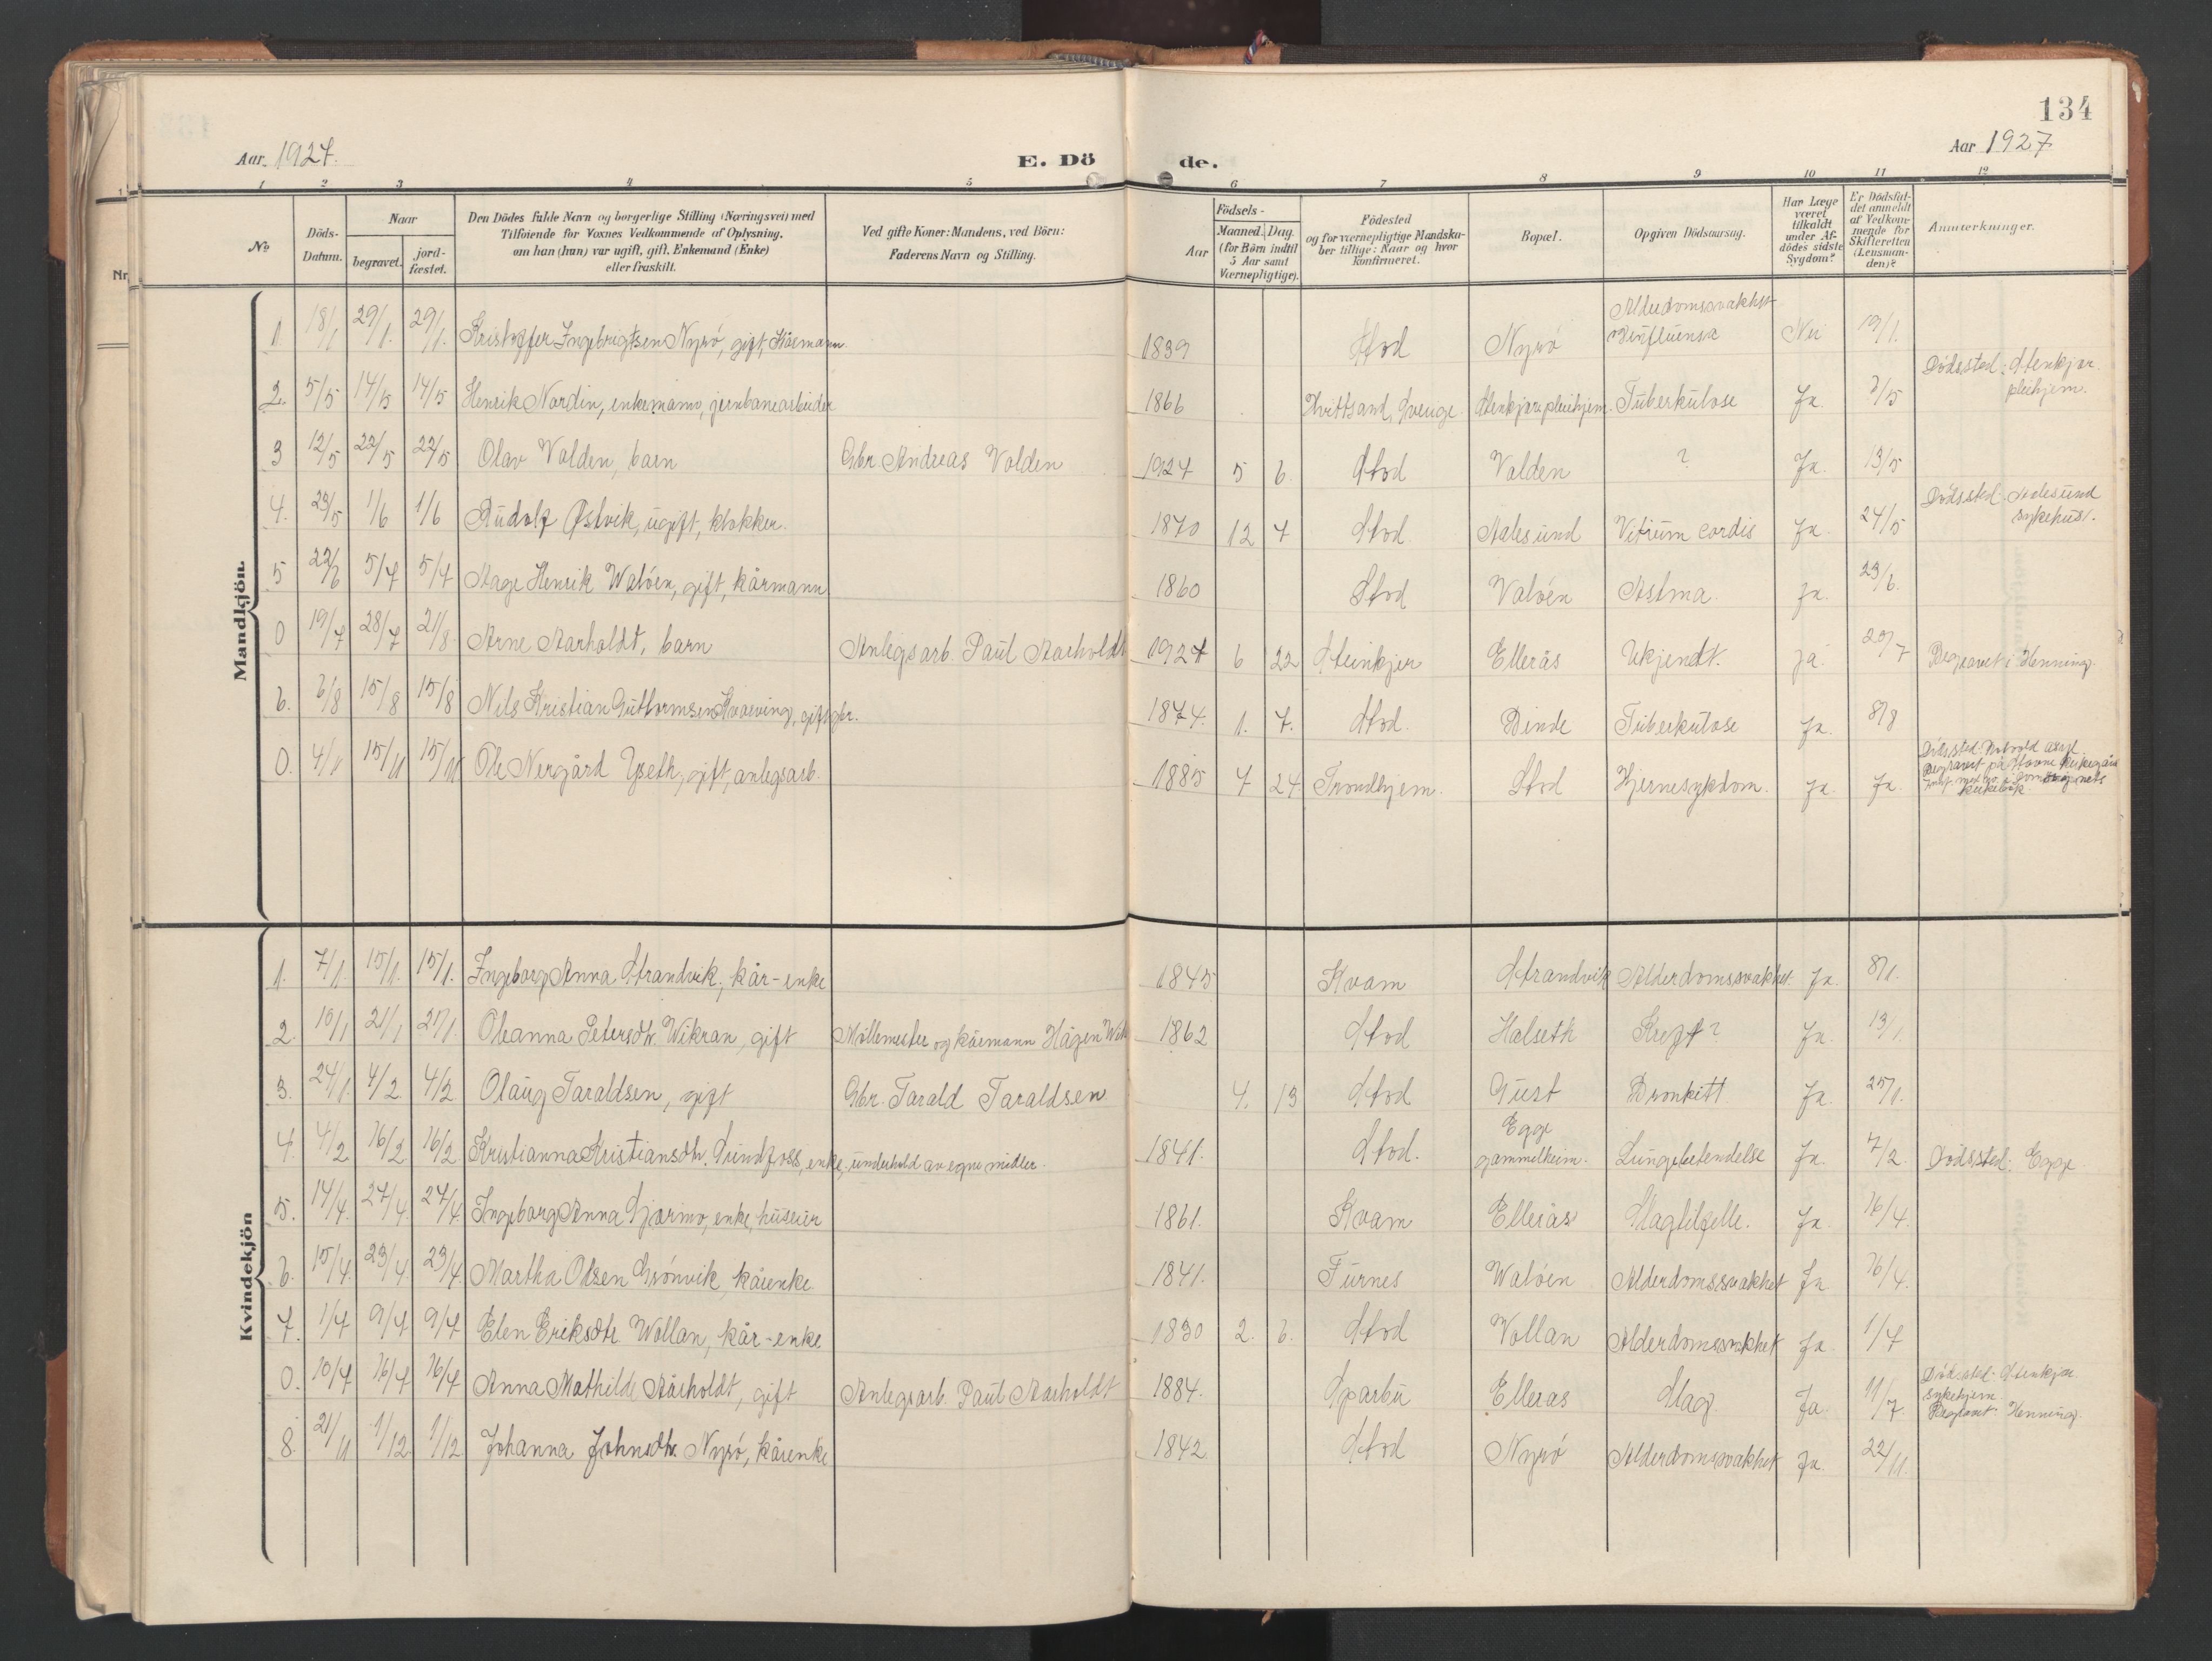 134
Aar 1927.
E. Dö de.
Aar 1927
1 2 3 4 5 6 7 8 9 10 11 12
No
Döds-Datum.
Naar
begravet.
jord-fæstet.
Den Dödes fulde Navn og borgerlige Stilling (Næringsvei) med
Tilföiende for Voxnes Vedkommende af Oplysning,
om han (hun) var ugift, gift, Enkemand (Enke)
eller fraskilt.
Ved gifte Koner: Mandens, ved Börn:
Faderens Navn og Stilling.
Födsels-
Aar
Maaned. Dag.
(for Börn indtil
5 Aar samt
Værnepligtige).
Födested
og for værnepligtige Mandska-
ber tillige: Naar og hvor
konfirmeret.
Bopæl.
Opgiven Dödsaarsag.
Har Læge
været
tilkaldt
under Af-
dödes sidste
Sygdom?
Er Dödsfal-
det anmeldt
af Vedkom-
mende for
Skifteretten
(Lensman-
den)?
Anmerkninger.
Mandkjön.
1. 18/1 29/1. 29/1. Kristoffer Ingebrigtsen Nyrö, gift, Kårmann. 1839 Stod Nyrö Alderdomssvakhet Influensa Nei 19/1.
2. 5/5 14/5 14/5 Henrik Nordin, enkemann, jernbanearbeider 1866 Hvittsand, Sverige. Stenkjær pleiehjem. Tuberkulose Ja. 7/5 Dödssted: Stenkjær pleiehjem.
3 12/5 22/5 22/5 Olav Volden, barn Gbr. Andreas Volden 1924 5 6. Stod Volden ? Ja. 13/5
4. 23/5 1/6 1/6 Rudolf Østvik, ugift, klokker. 1870 12 7 Stod. Aalesund Vitium cordis Ja. 24/5 Dödssted: Aalesund sykehus.
5 22/6 5/7 5/7 Aage Henrik Walöen, gift, kårmann 1860 Stod Valöen Astma. Ja. 23/6.
0 19/7 28/7 21/8 Arne Aarholdt, barn Anlegsarb. Paul Aarholdt 1927 6 22 Steinkjer Ellerås Ukjendt. ja. 20/7 Begravet i Henning.
6. 6/8 15/8 15/8 Nils Kristian Guttormsen Kvarving, gift gbr. 1874. 1. 7. Stod. Binde Tuberkulose Ja. 8/8
0. 4/11 15/11 15/11 Ole Nergård Yseth, gift, anlegsarb. 1885 7 24 Trondhjem. Stod Hjernesykdom. Ja. Ja. Dödssted: Rotvold asyl. Begravet på Stavne kirkegård
kirkebok
Kvindekjön
1. 7/1. 15/1. 15/1. Ingeborg Anna Strandvik, kår-enke 1845 Kvam Strandvik Alderdomssvakhet. Ja. 8/1.
2. 10/1 21/1 21/1. Oleanna Petersdtr. Wikran, gift Möllemester og kårmann Hågen Wik 1862 Stod Halseth Kreft? Ja. 13/1.
3. 24/1. 4/2. 4/2 Olaug Taraldsen, gift Gbr. Tarald Taraldsen 4. 13 Stod Gust Bronkitt Ja. 25/1.
4. 4/2 16/2 16/2 Kristianna Kristiansdtr. Sundfoss, enke, underhold av egne midler. 1841. Stod. Egge gammelheim. Lungebetendelse Ja. 7/2. Dödssted: Egge
5. 14/4. 27/4. 27/4. Ingeborg Anna Gjærmo, enke, huseier 1861. Kvam Ellerås Slagtilfelle. Ja. 16/4.
6. 15/4. 23/4. 23/4. Martha Olsen Grönvik, kårenke. 1841. Furnes Walöen Alderdomssvakhet Ja. 16/4.
7. 1/7 9/7 9/7 Elen Eriksdtr Wollan, kår-enke 1830 2. 6. Stod Vollan Alderdomssvakhet Ja. 1/7
0. 10/7 16/7 16/7 Anna Mathilde Aarholdt, gift Anlegsarb. Paul Aarholdt 1884. Sparbu Ellerås Slag Ja. 11/7. Dödssted: Stenkjær sykehjem. Begravet: Henning.
8. 21/11 1/12 1/12 Johanna Johnsdtr. Nyrö, kårenke 1842 Stod Nyrö Alderdomssvakhet Ja. 22/11.